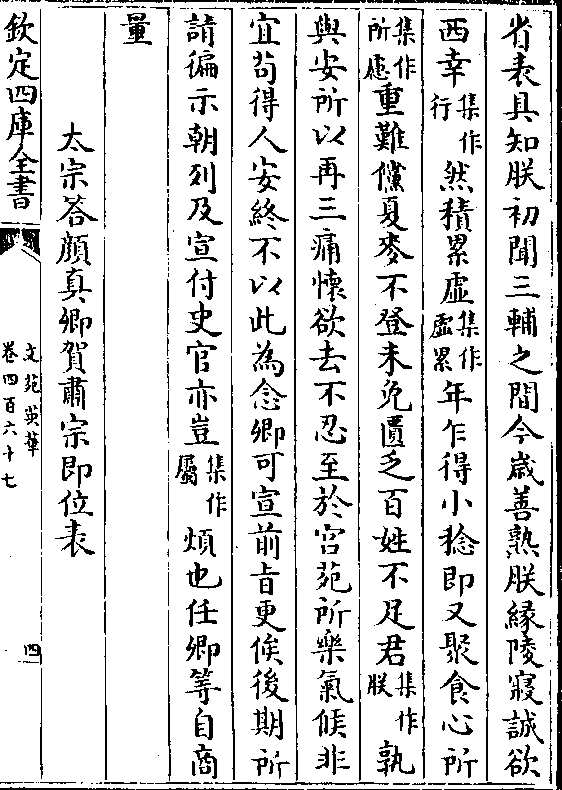 省表具知朕初聞三輔之間今歲善熟朕緣陵寢誠欲
西幸集作行然積累虛集作虛累年乍得小稔即又聚食心所
集作所慮重難儻夏麥不登未免匱乏百姓不足君集作朕孰
與安所以再三痛懷欲去不忍至於宫苑所樂氣候非
宜苟得人安終不以此為念卿可宣前旨更俟後期所
請徧示朝列及宣付史官亦豈集作屬煩也任卿等自商
量
太宗答顔真卿賀肅宗即位表
欽定四庫全書
文苑英華
卷四百六十七
四